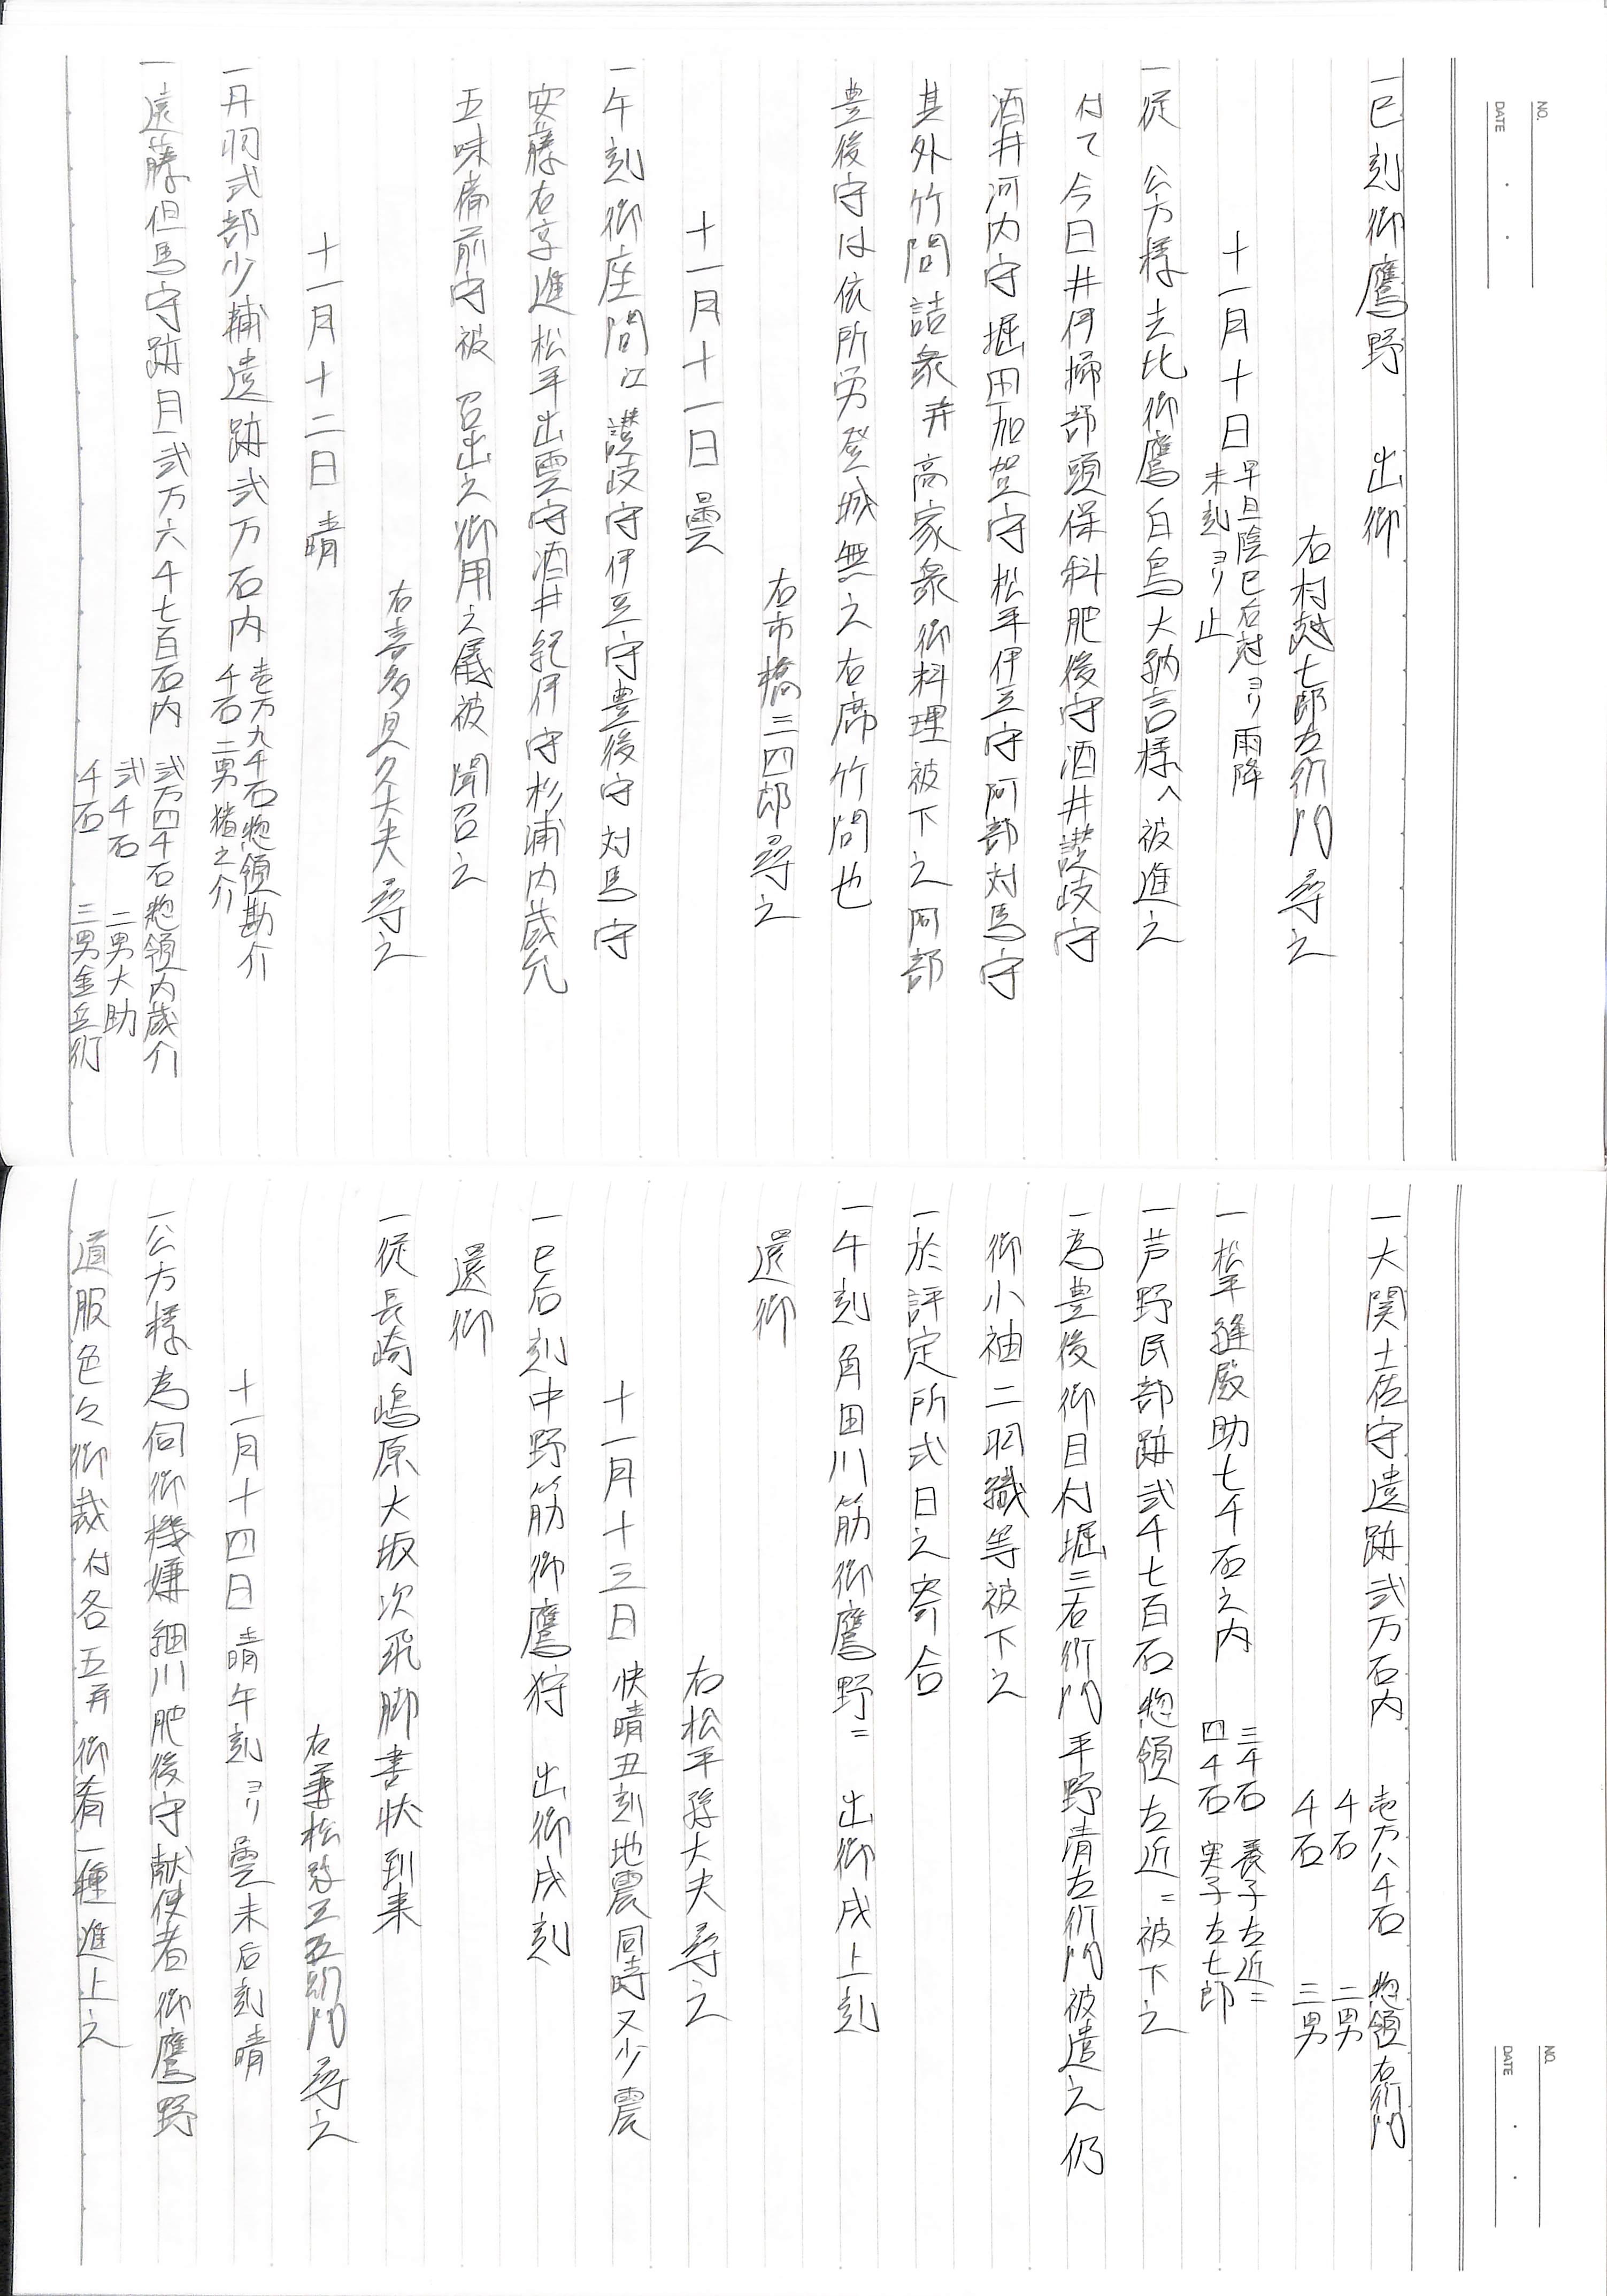 NO.
DATE
一巳刻御鷹野　出御
右村越七郎左衛門尋之
十一月十日 早旦陰巳后尅ヨリ雨降
未刻ヨリ止
一従　公方様去比御鷹白鳥大納言様へ被進之
付て今日井伊掃部頭保科肥後守酒井讃岐守
酒井河内守堀田加賀守松平伊豆守阿部対馬守
其外竹間詰衆并高家衆御料理被下之阿部
豊後守は依所労登城無之右席竹間也
右市橋三四郎尋之
十一月十一日曇
一午刻御座間江讃岐守伊豆守豊後守対馬守
安藤右京進松平出雲守酒井紀伊守杉浦内蔵允
五味備前守被　召出之御用之儀被　聞召之
右喜多見久大夫尋之
十一月十二日晴
一丹羽式部少輔遺跡弐万石内 壱万九千石惣領勘介
千石二男猪之介
一遠藤但馬守跡目弐万六千七百石内 弐万四千石惣領内蔵介
弐千石　二男大助
千石　三男金兵衛
NO.
DATE
一大関土佐守遺跡弐万石内 壱万八千石　惣領右衛門
千石　二男
千石　三男
一松平縫殿助七千石之内 三千石　養子左近ニ
四千石　実子左七郎
一芦野民部跡弐千七百石惣領左近ニ被下之
一為豊後御目付堀三右衛門平野清左衛門被遣之仍
御小袖二羽織等被下之
一於評定所式日之寄合
一午刻角田川筋御鷹野ニ　出御戌上刻
還御
右松平孫大夫尋之
十一月十三日　快晴丑刻地震同時又少震
一巳后刻中野筋御鷹狩　出御戌刻
還御
一従長崎嶋原大坂次飛脚書状到来
右兼松弥五左衛門尋之
十一月十四日晴午刻ヨリ曇未后刻晴
一公方様為伺御機嫌細川肥後守献使者御鷹野
道服色々御裁付各五并御肴一種進上之